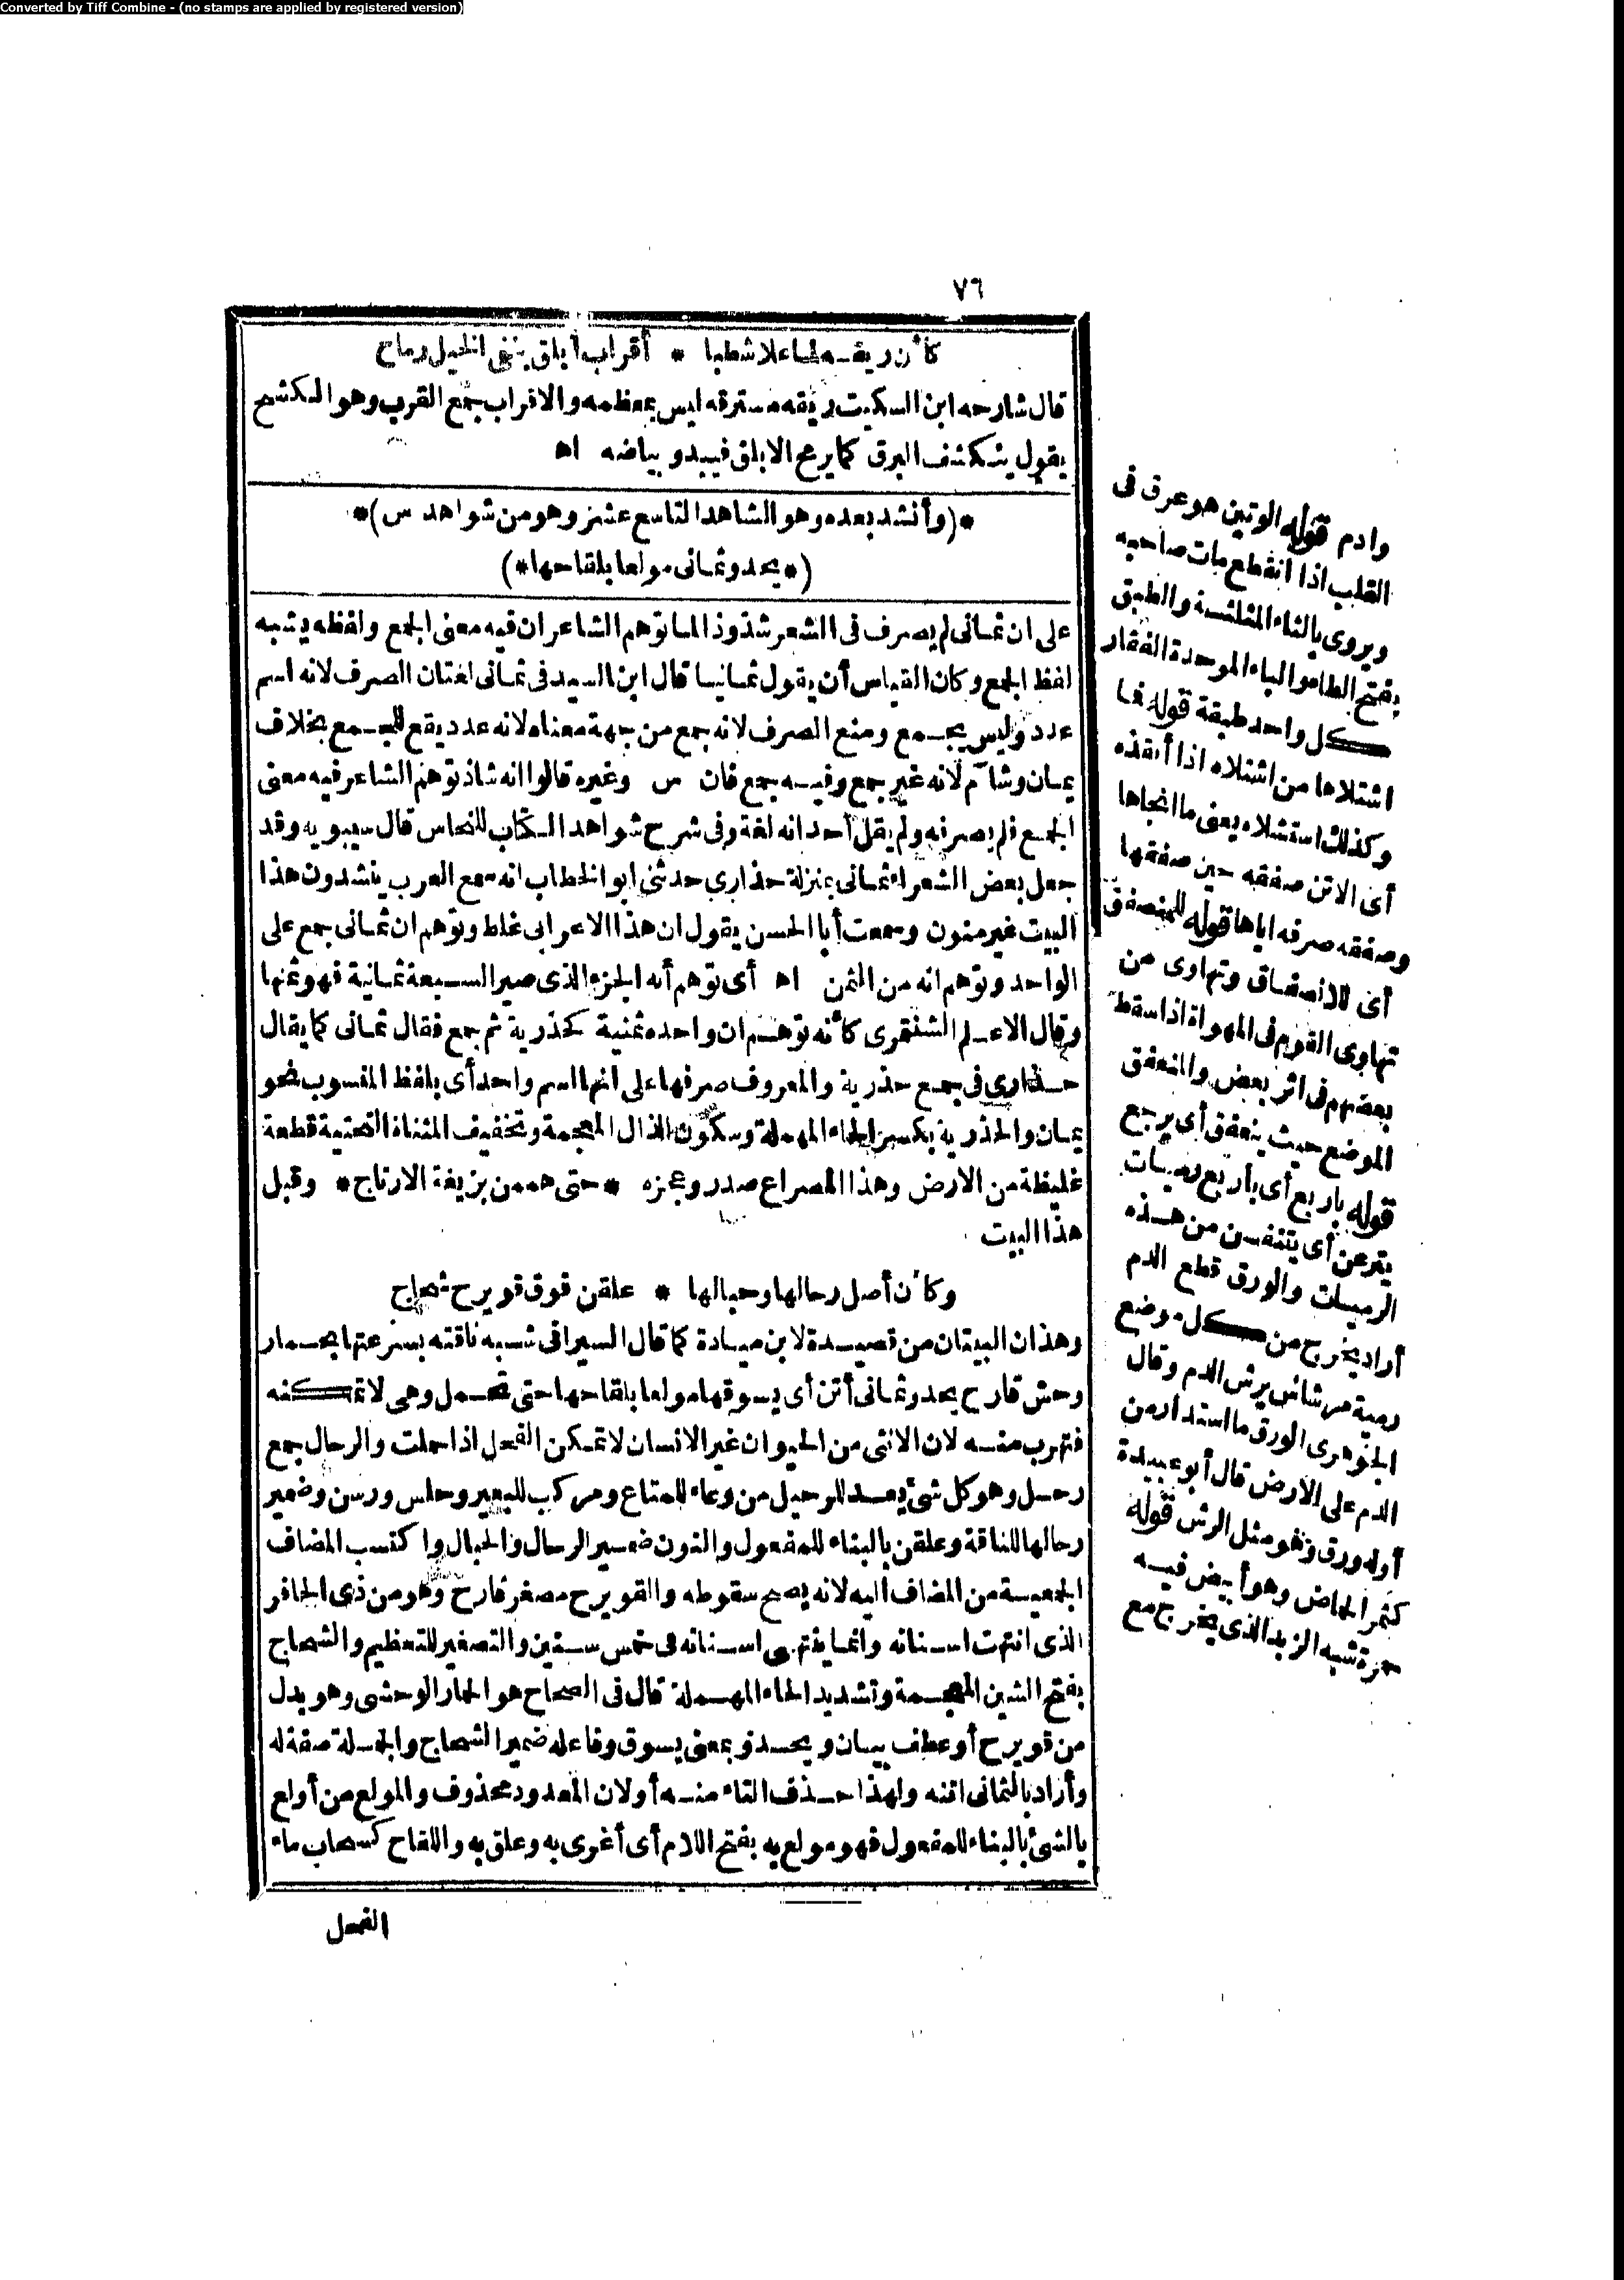 Converted by Tiff Combine - (no stamps are applied by registered version)
٧٦
كأن ريقه لما علا شطبا * أقراب أبلق ينفى الخيل رماح
قال شارحه ابن السكيت ريقه مسترقه ليس بمعظمه والاقراب جمع القرب وهو الكشح
يقول ينكشف البرق كما يرمح الابلق فيبدو بياضه اه
*(وأنشد بعده وهو الشاهد التاسع عشر وهو من شواهد س)*
(*يحدو ثمانى مولعا بلقاحها*)
على ان ثمانى لم يصرف فى الشعر شذوذا لما توهم الشاعر ان فيه معنى الجمع ولفظه يشبه
لفظ الجمع وكان القياس أن يقول ثمانيا قال ابن السيد فى ثمانى لغتان الصرف لانه اسم
عدد وليس بجمع ومنع الصرف لانه جمع من جهة معناه لانه عدد يقع للجمع بخلاف
يمان وشآم لانه غير جمع وفيه جمع فان س وغيره قالوا انه شاذ توهم الشاعر فيه معنى
الجمع فلم يصرفه ولم يقل أحد انه لغة وفى شرح شواهد الكتاب للنحاس قال سيبويه وقد
جعل بعض الشعراء ثمانى بمنزلة حذارى حدثنى ابو الخطاب انه سمع العرب ينشدون هذا
البيت غير منون وسمعت أبا الحسن يقول ان هذا الاعرابى غلط وتوهم ان ثمانى جمع على
الواحد وتوهم انه من الثمن اه أى توهم أنه الجزء الذى صير السبعة ثمانية فهو ثمنها
وقال الاعلم الشنتمرى كأنه توهم ان واحده ثمنية كحذرية ثم جمع فقال ثمانى كما يقال
حذارى فى جمع حذرية والمعروف صرفها على انها اسم واحد أى بلفظ المنسوب نحو
يمان والحذرية بكسر الحاء المهملة وسكون الذال المعجمة وتخفيف المثناة التحتية قطعة
غليظة من الارض وهذا المصراع صدر وعجزه *حتى هممن بزيغة الارتاج* وقبل
هذا البيت
وكأن أصل رحالها وحبالها * علقن فوق قويرح شحاج
وهذان البيتان من قصيدة لابن ميادة كما قال السيرافى شبه ناقته بسرعتها بحمار
وحش قارح يحدو ثمانى أتن أى يسوقها مولعا بلقاحها حتى تحمل وهى لا تمكنه
فتهرب منه لان الانثى من الحيوان غير الانسان لا تمكن الفحل اذا حملت والرحال جمع
رحل وهو كل شئ يعد للرحيل من وعاء للمتاع ومركب للبعير وحلس ورسن وضمير
رحالها للناقة وعلقن بالبناء للمفعول والنون ضمير الرحال والحبال واكتسب المضاف
الجمعية من المضاف اليه لانه يصح سقوطه والقويرح مصغر قارح وهو من ذى الحافر
الذى انتهت اسنانه وانما تنتهى اسنانه فى خمس سنين والتصغير للتعظيم والشحاج
بفتح الشين المعجمة وتشديد الحاء المهملة قال فى الصحاح هو الحمار الوحشى وهو بدل
من قويرح أو عطف بيان ويحدو بمعنى يسوق وفاعله ضمير الشحاج والجملة صفة له
وأراد بالثمانى اتنه ولهذا حذف التاء منه أو لان المعدود محذوف والمولع من أولع
بالشئ بالبناء للمفعول فهو مولع به بفتح اللام أى أغرى به وعلق به واللقاح كسحاب ماء
الفحل
وادم قوله الوتين هو عرق فى
القلب اذا انقطع مات صاحبه
ويروى بالثاء المثلثة والطبق
بفتح الطاء والباء الموحدة الفقار
كل واحد طبقة قوله فما
اشتلاها من اشتلاه اذا أنقذه
وكذلك استشلاه يعنى ما انجاها
أى الاتن صفقه حين صفقها
وصفقه صرفه اياها قوله للمنصفق
أى للانصفاق وتهاوى من
تهاوى القوم فى المهواة اذا سقط
بعضهم فى اثر بعض والمنعفق
الموضع حيث ينعفق أى يرجع
قوله باربع أى بأربع رميات
يترعن أى يتنفسن من هذه
الرميات والورق قطع الدم
أراد يخرج من كل موضع
رمية مرشاش يرش الدم وقال
الجوهرى الورق ما استدار من
الدم على الارض قال أبو عبيدة
أوله ورق وهو مثل الرش قوله
كثمر الحماض وهو أبيض فيه
حمرة شبه الزبد الذى يخرج مع